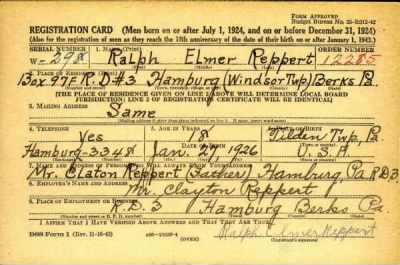 FORM APPROVED
Budget Bureau No. 33-R012-42
REGISTRATION CARD (Men born on or after July 1, 1924, and on or before December 31, 1924)
(Also for the registration of men as they reach the 18th anniversary of the date of their birth on or after January 1, 1943.)
SERIAL NUMBER
1. NAME (Print)
ORDER NUMBER
W-298 Ralph Elmer Reppert 12285
(First) (Middle) (Last)
2. PLACE OF RESIDENCE (Print)
Box 97E R.D#3 Hamburg (Windsor Twp) Berks Pa.
[THE PLACE OF RESIDENCE GIVEN ON LINE 2 ABOVE WILL DETERMINE LOCAL BOARD
JURISDICTION; LINE 2 OF REGISTRATION CERTIFICATE WILL BE IDENTICAL]
3. MAILING ADDRESS
Same
4. TELEPHONE
5. AGE IN YEARS
6. PLACE OF BIRTH
Yes 18 Tilden Twp., Pa
DATE OF BIRTH
Hamburg-3348 Jan. 1926 U.S.A.
7. NAME AND ADDRESS OF PERSON WHO WILL ALWAYS KNOW YOUR ADDRESS
Mr. Claton Reppert (Father) Hamburg, Pa. R.D.3
8. EMPLOYER'S NAME AND ADDRESS
Mr. Clayton Reppert
9. PLACE OF EMPLOYMENT OR BUSINESS
R.D.3 Hamburg Berks Pa.
I AFFIRM THAT I HAVE VERIFIED ABOVE ANSWERS AND THAT THEY ARE TRUE.
DSS Form 1 (Rev. 11-16-42) (OVER) Ralph Elmer Reppert
(Registrant's signature)